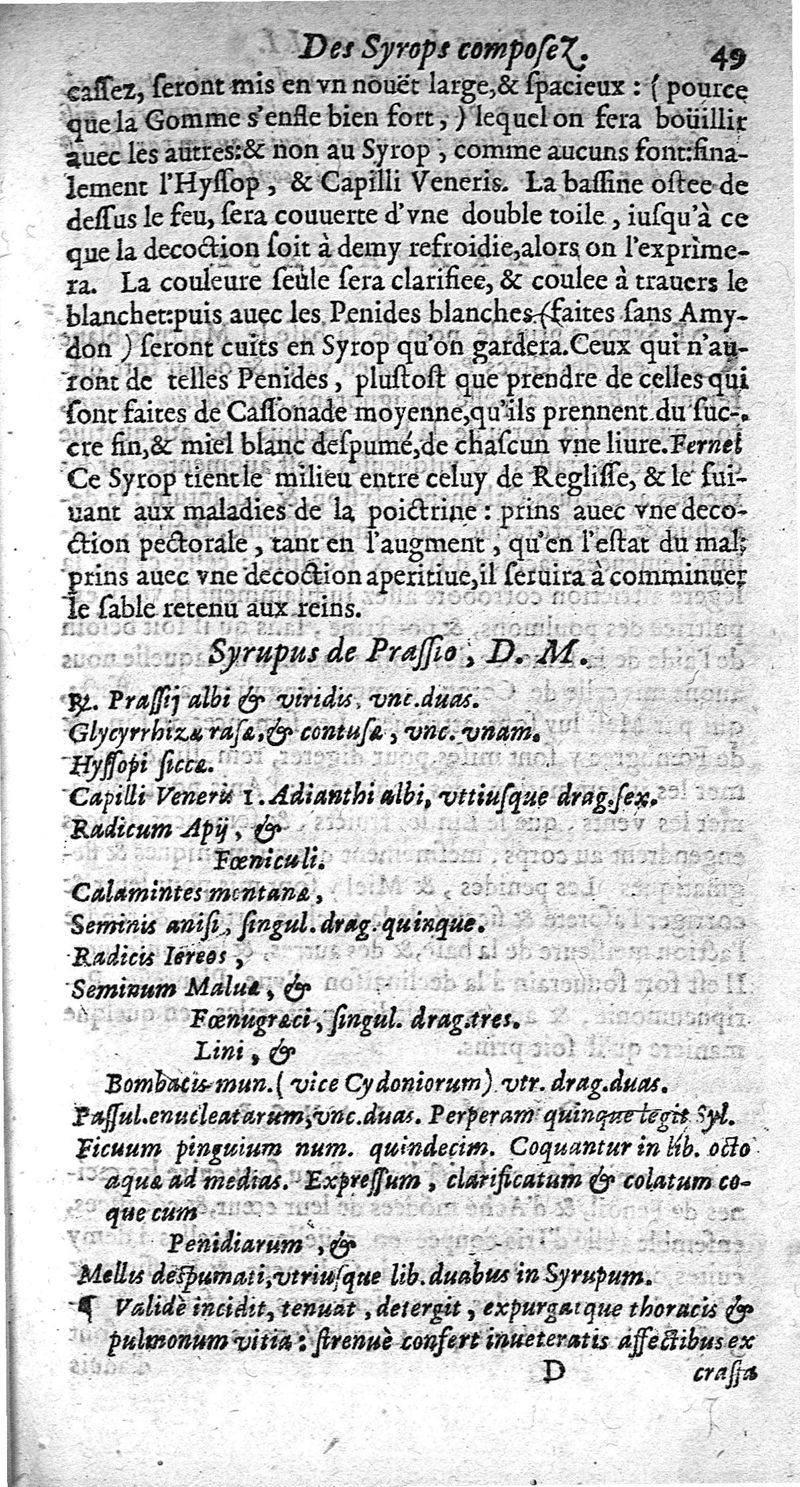 Des Syrops composeZ. 49
cassez, seront mis en vn nouët large,& spacieux : ( pource
que la Gomme s'enfle bien fort, ) lequel on fera boüillir
auec les autres:& non au Syrop , comme aucuns font:fina-
lement l'Hyssop , & Capilli Veneris. La bassine ostee de
dessus le feu, sera couuerte d'vne double toile , iusqu'à ce
que la decoction soit à demy refroidie,alors on l'exprime-
ra. La couleure seule sera clarifiee, & coulee à trauers le
blanchet:puis auec les Penides blanches (faites sans Amy-
don ) seront cuits en Syrop qu'on gardera.Ceux qui n'au-
ront de telles Penides , plustost que prendre de celles qui
sont faites de Cassonade moyenne,qu'ils prennent du suc-
cre fin,& miel blanc despumé,de chascun vne liure.Fernel
Ce Syrop tient le milieu entre celuy de Reglisse, & le sui-
uant aux maladies de la poictrine : prins auec vne deco-
ction pectorale , tant en l'augment , qu'en l'estat du mal;
prins auec vne decoction aperitiue,il seruira à comminuer
le sable retenu aux reins.
Syrupus de Prassio , D. M.
℞. Prassij albi & viridis, vnc.duas.
Glycyrrhizæ rasæ,& contusæ , vnc. vnam.
Hyssopi siccæ.
Capilli Veneris 1. Adianthi albi, vttiusque drag.sex.
Radicum Apij , &
Fœniculi.
Calamintes montanæ ,
Seminis anisi , singul. drag. quinque.
Radicis Iereos ,
Seminum Maluæ , &
Fœnugræci , singul. drag.tres.
Lini , &
Bombacis mun. ( vice Cydoniorum) vtr. drag.duas.
Passul.enucleatarum,vnc.duas. Perperam quinque legit Syl.
Ficuum pinguium num. quindecim. Coquantur in lib. octo
aquæ ad medias. Expressum , clarificatum & colatum co-
que cum
Penidiarum , &
Mellis despumati,vtriusque lib.duabus in Syrupum.
¶ Validè incidit, tenuat , detergit , expurgatque thoracis &
pulmonum vitia : strenuè confert inueteratis affectibus ex
D crassa